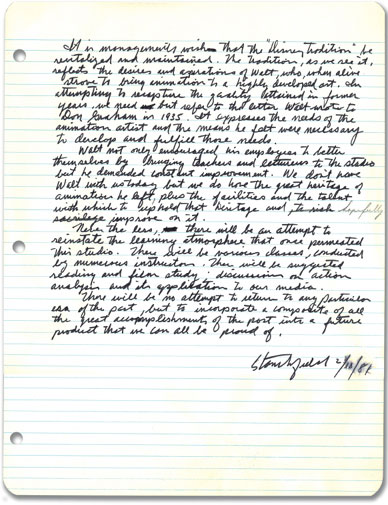 It is management's wishes that the "Disney Tradition" be
revitalized and maintained. The Tradition, as we see it,
reflects the desires and operations of Walt, who, when alive
strove to bring animation to a highly developed art. In
attempting to recapture the quality attained in former
years, we need but refer to the letter Walt wrote to
Don Graham in 1935. It expresses the needs of the
animation artist and the means he felt were necessary
to develop and fulfill those needs.
Walt not only encouraged his employees to better
themselves by bringing teachers and lecturers to the studio
but he demanded constant improvement. We don't have
Walt with us today but we do have the great heritage of
animation he left, plus the facilities and the talent
with which to uphold that heritage and, to risk hopefully
sacrilege improve on it.
None the less, there will be an attempt to
reinstate the learning atmosphere that once permeated
this studio. There will be various classes, conducted
by numerous instructors. There will be suggested
reading and film study; discussions on action
analysis and its application to our media.
There will be no attempt to return to any particular
era of the past, but to incorporate a composite of all
the great accomplishments of the past into a future
product that we can all be proud of.